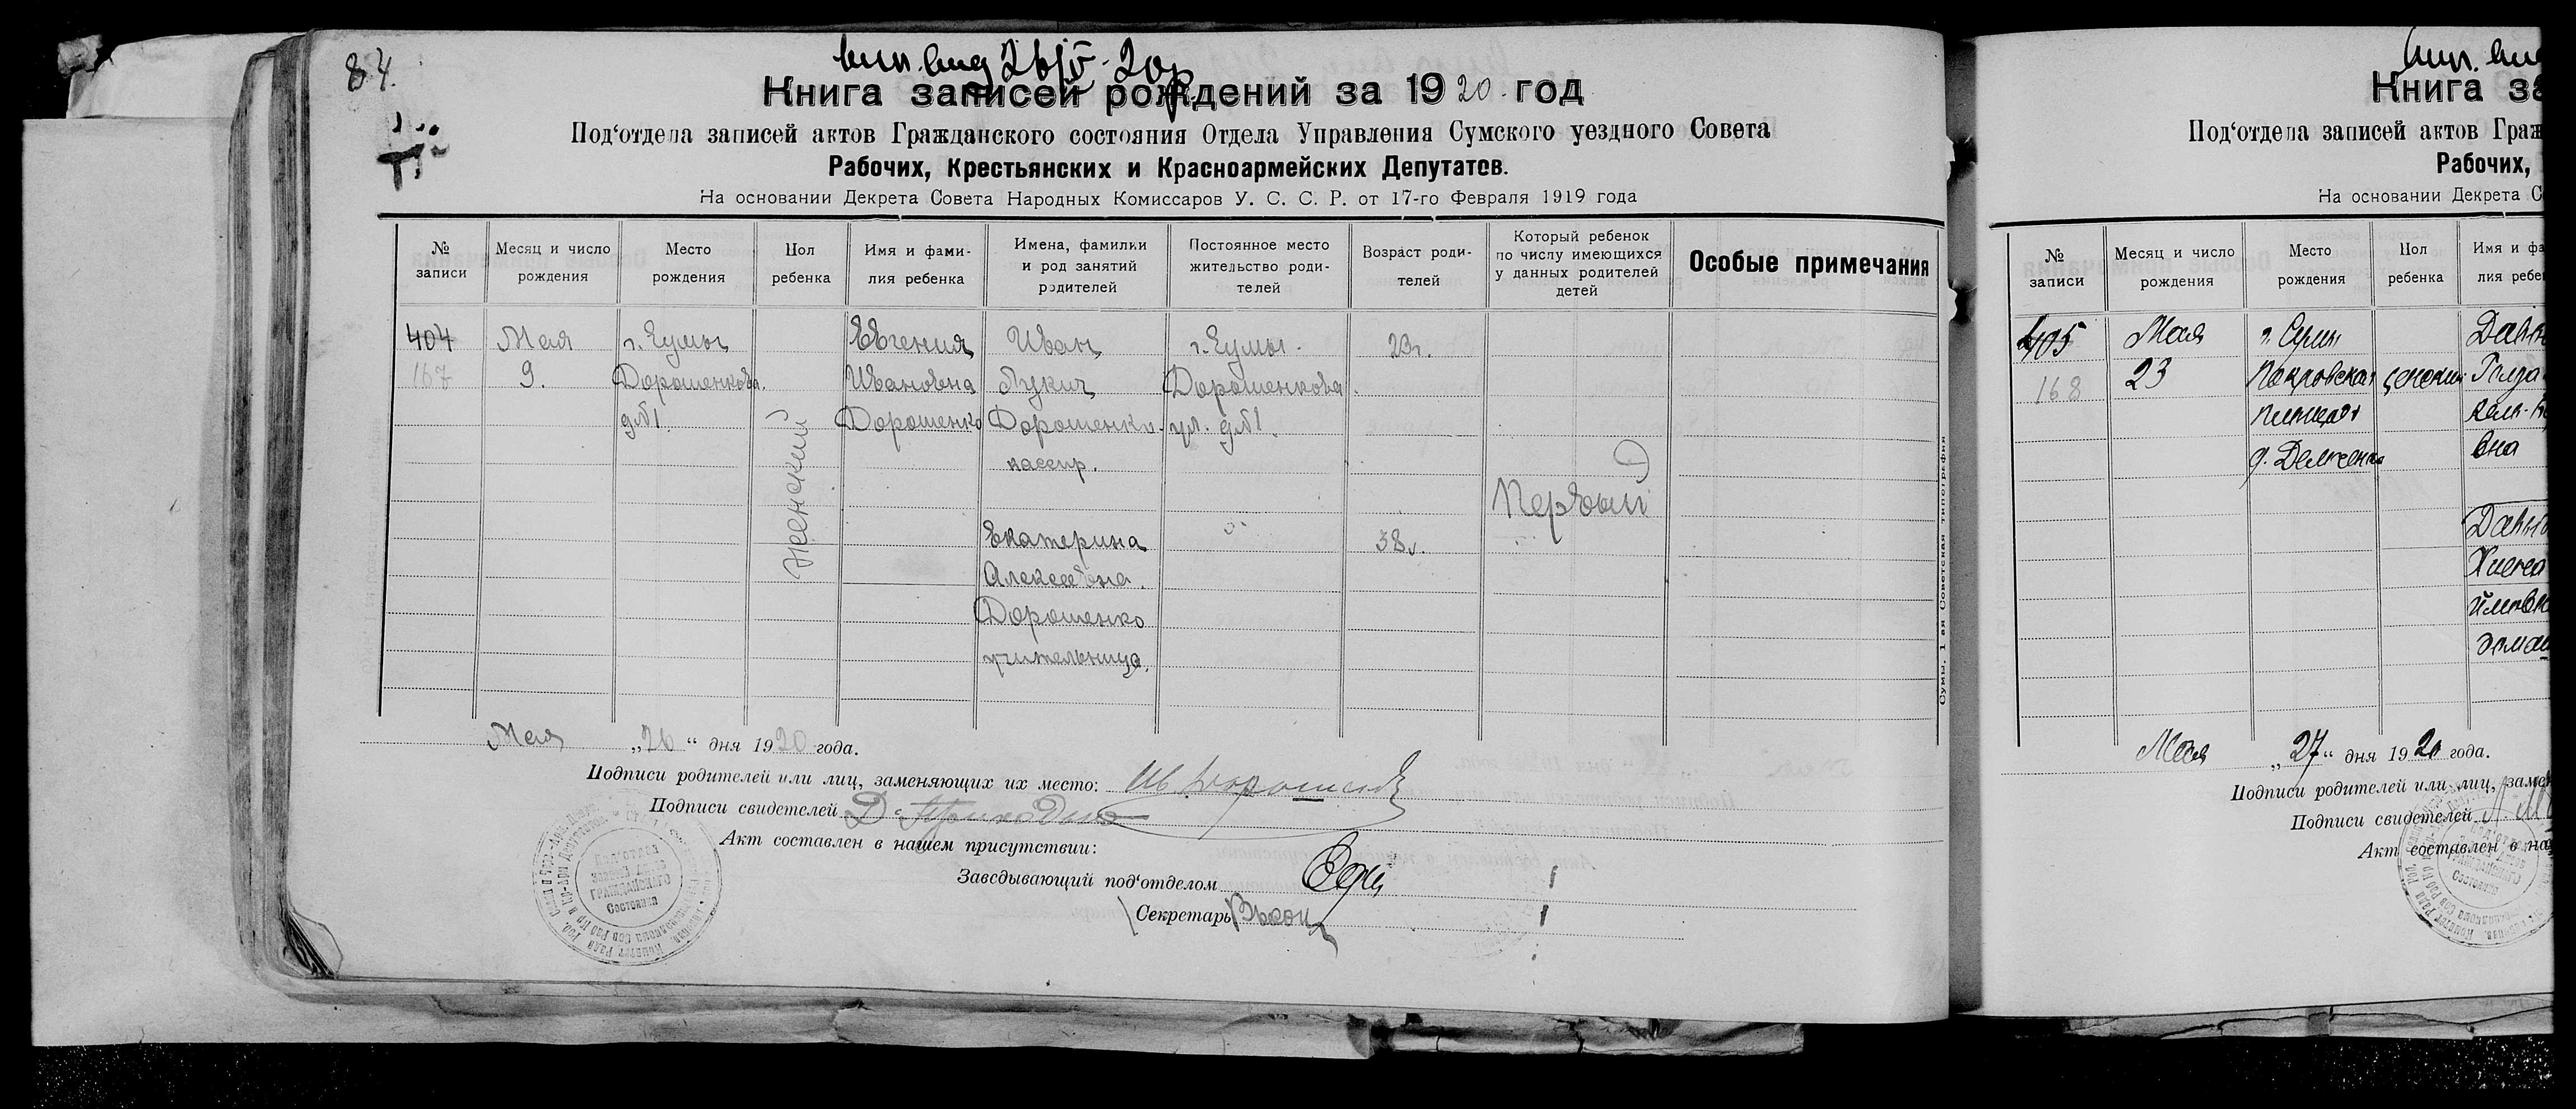 84.
вып. вид 26/V-20р.
Книга записей рождений за 1920 год
Под‘отдела записей актов Гражданского состояния Отдела Управления Сумского уездного Совета
Рабочих, Крестьянских и Красноармейских Депутатов.
На основании Декрета Совета Народных Комиссаров У. С. С. Р. от 17-го Февраля 1919 года
№ записи
Месяц и число рождения
Место рождения
Пол ребенка
Имя и фами-
лия ребенка
Имена, фамилии
и род занятий
родителей
Постоянное место
жительство роди-
телей
Возраст роди-
телей
Который ребенок
по числу имеющихся
у данных родителей
детей
Особые примечания
404
167
Мая
9.
г. Сумы
Дорошенкова.
д №1.
Женский
Евгения
Ивановна
Дорошенко
Иван
Лукич
Дорошенко.
кассир.
Екатерина
Алексеевна.
Дорошенко
учительница.
г. Сумы.
Дорошенкова
ул. д №1.
23г.
38л.
Первый
Мая „26“ дня 1920 года.
Подписи родителей или лиц, заменяющих их место: Ив. Дорошенко
Подписи свидетелей Д. Приходько
Акт составлен в нашем присутствии:
Заведывающий под‘отделом
Секретарь
Под‘отдел
Записи Актов
Гражданского
Состояния
Сумы, 1-ая Советская типография
Книга за
Под‘отдела записей актов Граж
Рабочих,
На основании Декрета С
№ записи
Месяц и число рождения
Место рождения
Пол ребенка
Имя и фа
лия ребен
405
168
Мая
23
г. Сумы
Покровская
площадь
женский
Мая „27“ дня 1920 года.
Подписи родителей или лиц, замен
Подписи свидетелей
Акт составлен в на